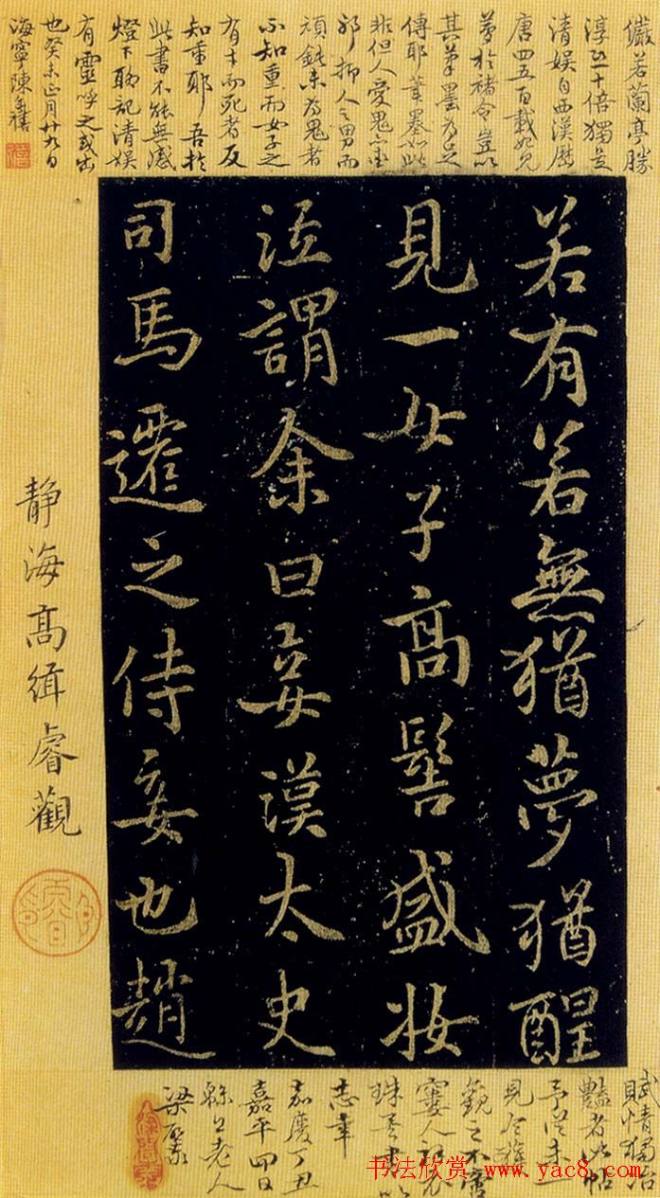 儼若蘭亭勝
淳正十倍獨是
清娱自西漢歷
唐四五百載始見
夢於褚令豈以
其筆墨為足
傳耶筆墨如此
非但人愛鬼亦
邪抑人之男而
頑鈍未為鬼者
不知重而女子之
有才而死者反
知重耶吾於
此書不能無感
燈下聊記清娱
有靈呼之或出
也癸未正月廿九日
海寧陳奕禧
若有若無猶夢猶醒
見一女子高髻盛妝
泣謂余曰妾漢太史
司馬遷之侍妾也趙
靜海高緝睿觀
賦情獨冶
豔者此帖
予從未一
見今雒
觀之不啻
寠人
珠
志幸
嘉慶丁丑
嘉平四日
老人
梁
书法欣赏 www.yac8.com